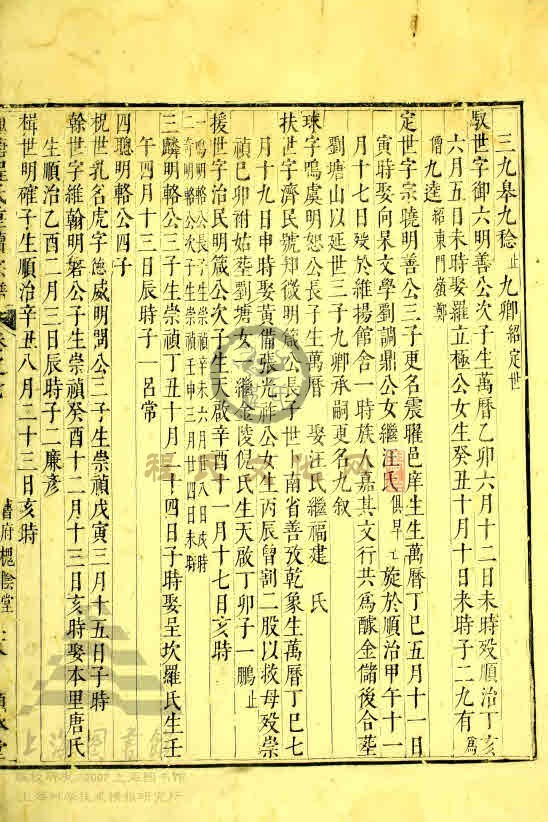 三九皋九稔止九卿紹定世
馭世字御六明善公次子生萬曆乙卯六月十二日未時歿順治丁亥
六月五日未時娶羅立極公女生癸丑十月十日未時子二九有為
僧九逵紹東門嶺鄭
定世字宗曉明善公三子更名震曜邑庠生生萬曆丁巳五月十一日
寅時娶向杲文學劉調鼎公女繼汪氏俱早亡旋於順治甲午十一
月十七日歿於維揚館舍一時族人嘉其文行共為醵金儲後合塟
劉塘山以延世三子九卿承嗣更名九叙
球字鳴虞明恕公長子生萬曆 娶汪氏繼福建 氏
扶世字濟民號邦微明 公長子世 南省善孜乾象生萬曆丁巳七
月十九日申時娶黃備張光祥公女生丙辰曾割二股以救母歿崇
禎己卯祔姑塟劉塘女一繼金陵倪氏生天啟丁卯子一鵬止
援世字治民明箴公次子生天啟辛酉十一月十七日亥時
一鳴明輅公長子生崇禎辛未六月 八日戌時
二奇明輅公次子生崇禎壬申三月廿四日未時
三麟明輅公三子生崇禎丁丑十月二十四日子時娶呈坎羅氏生壬
午四月十三日辰時子一呂常
四聰明輅公四子
祝世乳名虎字德威明 公三子生崇禎戊寅三月十五日子時
榦世字維翰明磐公子生崇禎癸酉十二月十三日亥時娶本里唐氏
生順治乙酉二月三日辰時子二廉彥
楫世明確子生順治辛丑八月二十三日亥時
槐陰堂
上海圖書館
版權所有 2007 上海图书馆
上海科学技术情报研究所